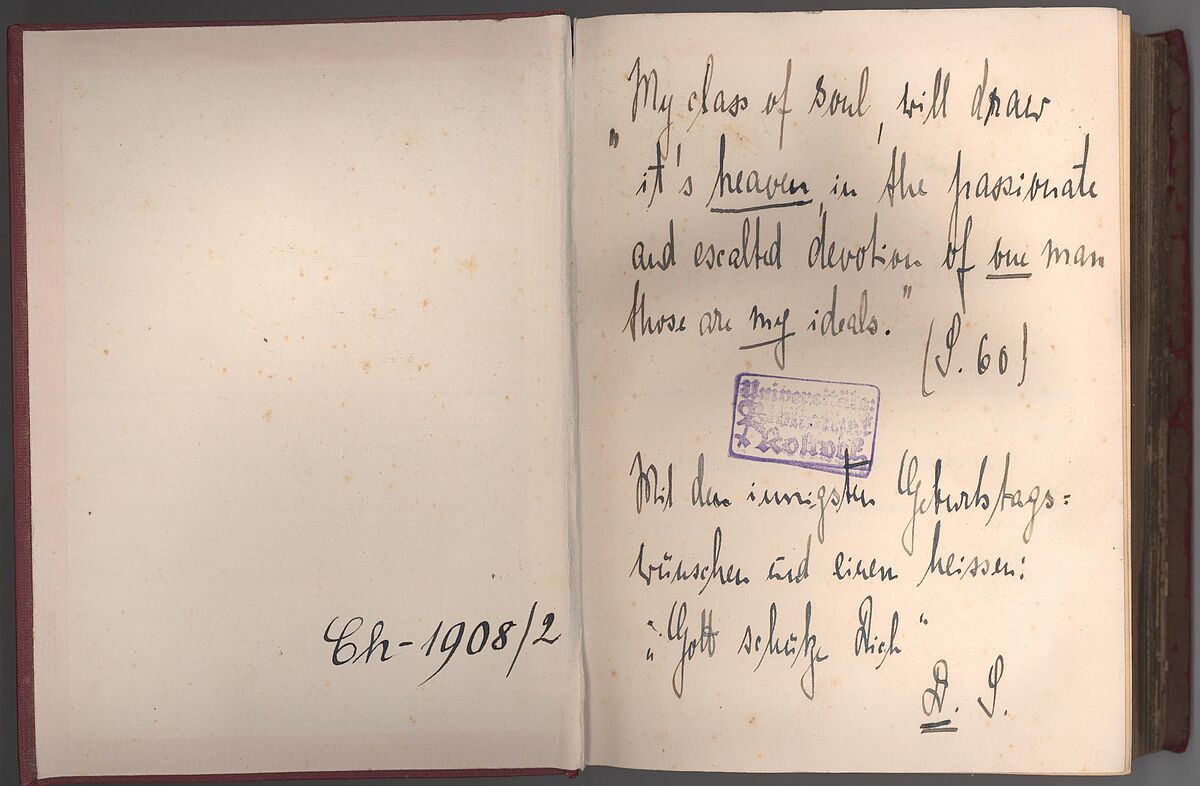 Ch-1908/2
My class of soul, will draw
"it's heaven, in the passionate
and escalted devotion of one man
those are my ideals."
(S. 60)
Universitäts-
Rostock
Mit den innigsten Geburtstags=
wünschen und einen heissen:
"Gott schütze Dich"
D. S.